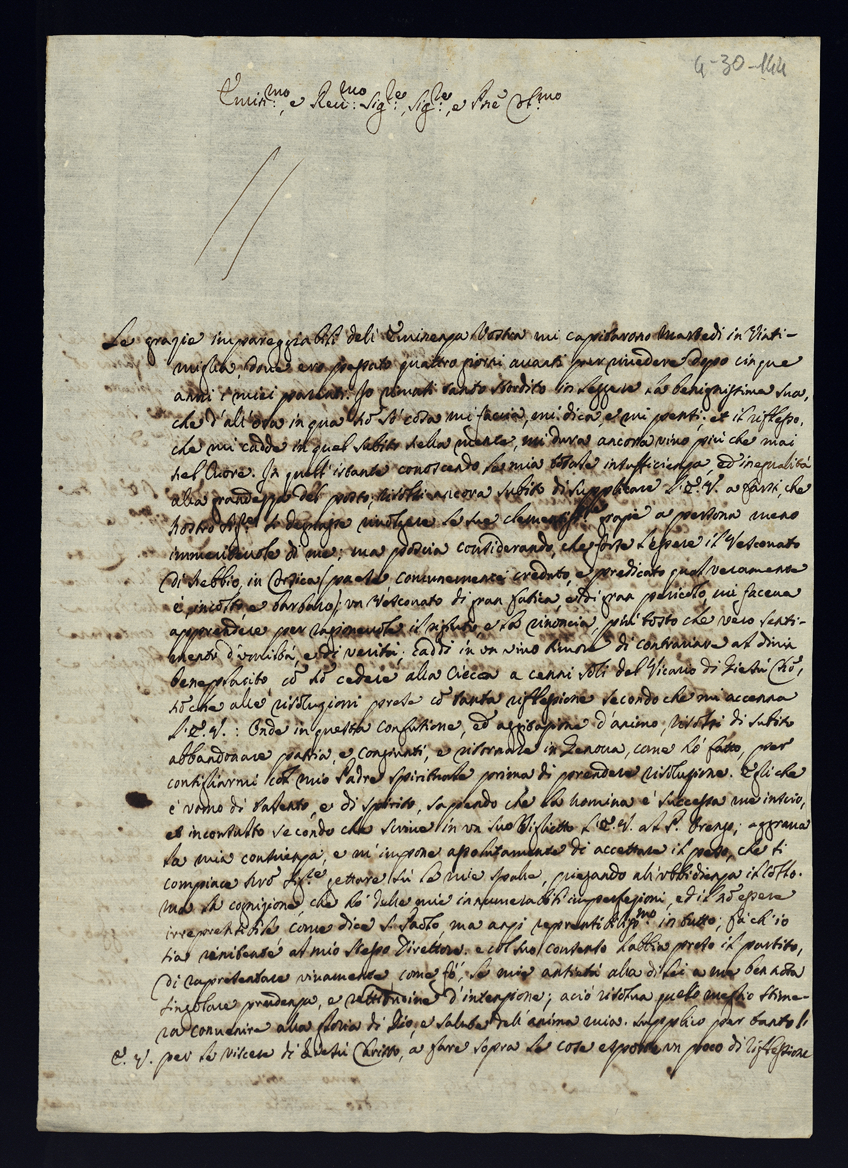 4-30-144
Emin:mo, e Rev:mo Sig:re, Sig:re, e Prōe
Le grazie impareggiabili dell Eminenza Vostra mi capitarono Martedi in Vinti-
miglia, dove ero passato quattro giorni avanti per rivedere dopo cinque
anni i miei parenti. Io rimasi tanto stordito in leggere la benignissima sua,
che d'all'ora in qua nō sò cosa mi faccia, mi dica, e mi pensi: et il riflesso,
che mi cadde in quel subito nella mente, mi dura ancora vivo più che mai
nel Cuore. In quell'istante conoscendo la mia totale insufficienza, ed inegualità
alla grandezza del posto, risolsi ancora subito di supplicare L'E. V. a farsi, che
Nostro Sig:re si degnasse rivolgere le sue grazie a persona meno
immeritevole di me; ma poscia considerando, che forse l'essere il Vescovato
di Nebbio, in Corsica (paese comunemente creduto, e predicato qual veramente
è, incolto, e barbaro) un Vescovato di gran fatica, e di gran pericolo, mi faceva
apprendere per ragionevole il rifiuto, e la rinoncia, più tosto che vero senti-
mento d'umiltà, e di verità; Caddi in un vivo timore di contrariare al divin
beneplacito cō nō cedere alla Ciecca a cenni soli del Vicario di Giesù Chō,
nō che alle risoluzioni prese cō tanta riflessione secondo che mi accenna
L'E. V. : Onde in questa confusione, ed aggitazione d'animo, risolsi di subito
abbandonare patria, e congiunti, e ritornare in Genova, come hò fatto, per
consigliarmi col mio Padre Spirituale prima di prendere risoluzione. Egli che
è uomo di talento, e di spirito, sapendo che la nomina è successa me inscio,
et inconsulto secondo che scrive in un suo Viglietto L'E. V. al P. ; aggrava
la mia coscienza, e m'impone assolutamente di accettare il peso, che si
compiace Nrō Sig:re gettare sù le mie spalle, piegando all'ubbidienza il collo.
Ma la cognizione, che hò delle mie innumerabili imperfezioni, ed il nō essere
irreprensibile come dice S. Paolo, ma anzi in tutto; fà ch'io
sia al mio stesso Direttore, e col suo contento habbia preso il partito,
di rapresentare vivamente, come fò, le mie alla di Lei a me ben nota
singolare prudenza, e rettitudine d'intenzione; aciò risolva quello meglio stime-
rà convenire alla gloria di Dio, e salute dell'anima mia. Supplico per tanto l'
E. V. per le viscere di Giesù Christo, a fare sopra le cose esposte un poco di riflessione